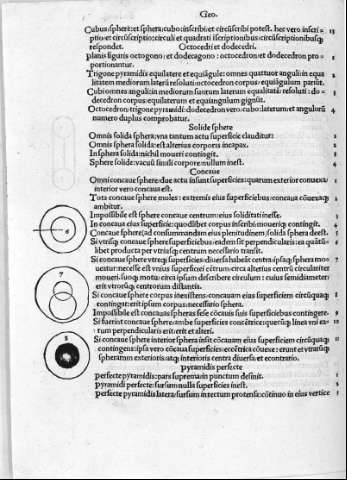 Geo.
Cubus spheret: et sphera: cubo: inscribi et circũscribi potest. hec vero inscri= 13
ptio et circũscriptio: circuli et quadrati iscriptionibus circũscriptionibusq
respondet. Octocedri et dodecedri.
planis figuris octogono: et dodecagono: octocedron: et dodecedron pro=
portionantur.
Trigone pyramidis equilatere et equiãgule: omnes quattuor anguli: in equa
litatem mediorum laterũ resoluti octocedron corpus: equalium pariunt.
Cubi omnes anguli: in mediorum suorum laterum equalitatẽ: resoluti: do=
decedron corpus: equilaterum et equiangulum gignũt.
Octocedron: trigone pyramidi: dodecedron vero: cubo: laterum et angulorũ
numero duplus comprobatur.
Solide sphere
Omnis solida sphera: vna tantum actu superficie clauditur:
Omnis sphera solida: est alterius corporis incapax.
In sphera solida nichil moueri contingit.
Sphere solide: vacuũ simili corpore nullum inest.
Concaue
Omni concaue sphere: due actu insunt superficies: quarum exterior conuexa
interior vero concaua est.
Tota concaue sphere moles: extremis eius superficiebus: concaua cõuexaq
ambitur.
Impossibile est sphere concaue centrum: eius soliditati inesse.
In concaua eius superficie: quodlibet corpus inscribi: moueriq contingit.
Concaue sphere: ad consummandam eius plenitudinem: solida sphera deest.
Si vtrisq concaue sphere superficiebus: eadem sit perpendicularis: ea quãtũ=
libet producta per vtriusq centrum necessario transit.
Si concaue sphere vtreq superficies: diuersa habeãt centra: ipsaq sphera mo=
ueatur: necesse est vnius superficiei cẽtrum: circa alterius centrũ circulariter
moueri: sursũq motu: circa ipsum describere circulum: cuius semidiameter:
erit vtrorũq centrorum distantis.
Si concaue sphere corpus inexistens: concauam eius superficiem circũquaq
contingat: erit ipsum corpus: necessario sphera.
Impossibile est concauas spheras sese cõcauis suis superficiebus contingere.
Si fuerint concaue sphere: ambe superficies concẽtrice: que: vni linea
tum perpendicularis erit: erit et alteri.
Si concaue sphere interior sphera insit: cõcauam eius superficiem circũquaq
contingens: ipsa vero cõcaua superficies: ecẽtrica cõuexe: erunt et vtrarũq
spherarum exterioris: atq interioris centra diuersa: et econtrario.
pyramidis perfecte
perfecte pyramidis: pars suprema in punctum desinit.
pyramidi perfecte: sursum nulla superficies inest.
perfecte pyramidis latera: sursum in rectum protensa: cõtinuo in eius vertice
6
7
8